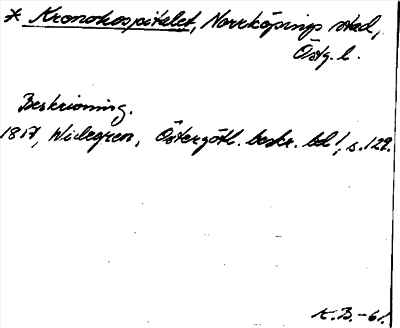 * Kronohospitalet, Norrköpings stad,
Östg. l.
Beskrivning.
1817, Widegren, Östergötl. beskr. bd 1, s. 129.
K.B. -61.